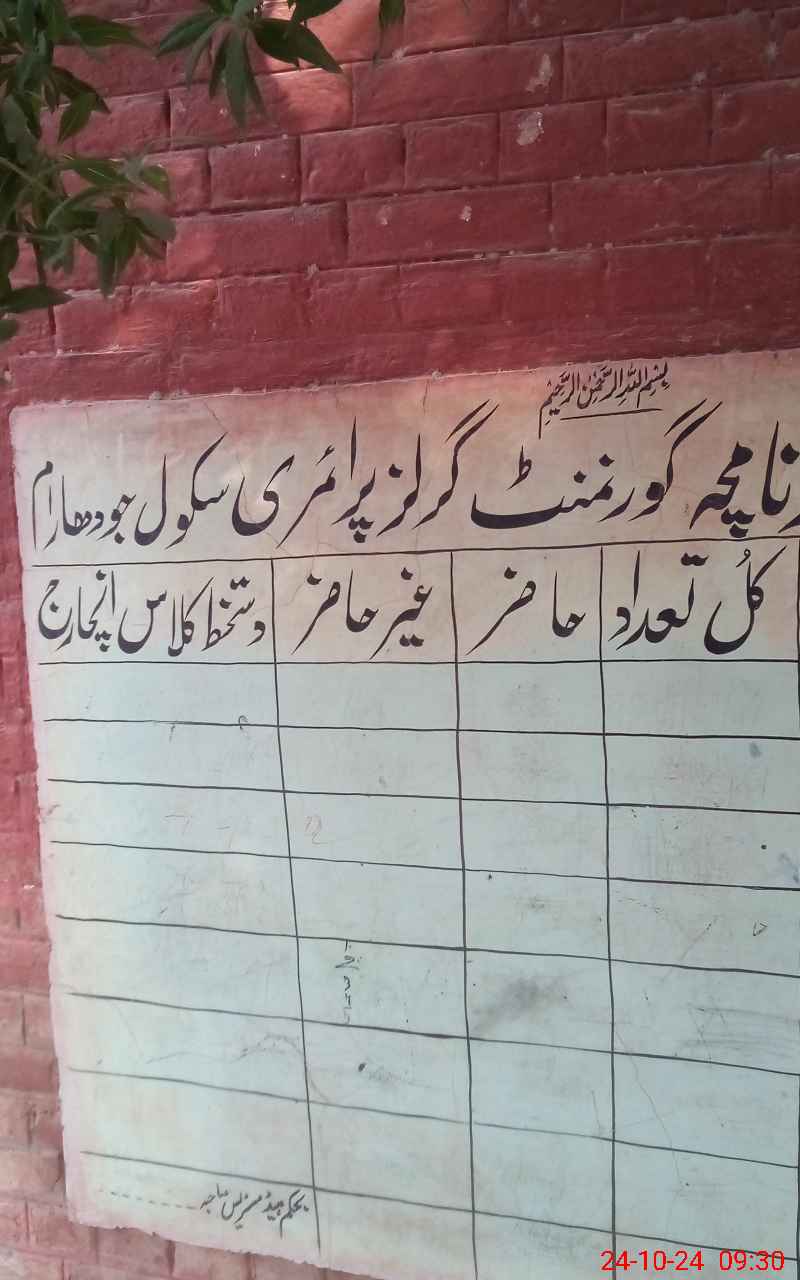 بِسْمِ اللهِ الرَّحْمٰنِ الرَّحِيْمِ
رنامچہ گورنمنٹ گرلز پرائمری سکول جودھارام
کُل تعداد حاضر غیر حاضر دستخط کلاس انچارج
بحکم ہیڈ مسٹریس صاحبہ
24-10-24 09:30